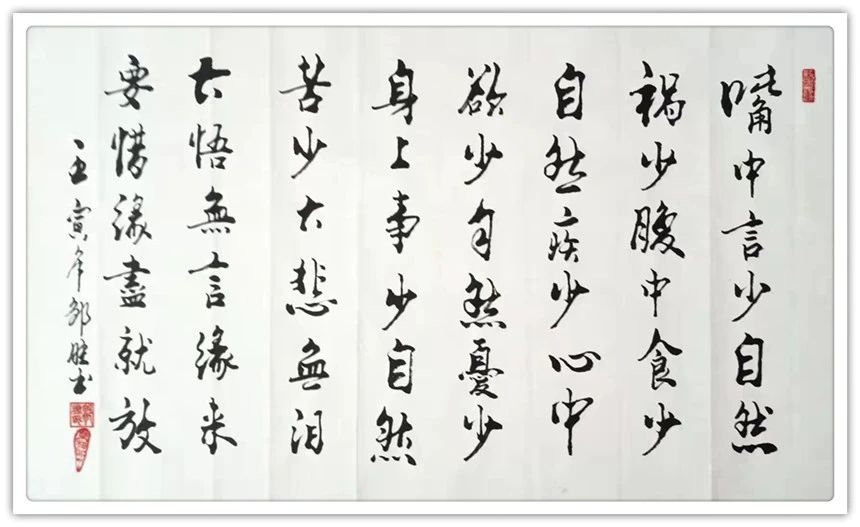 嘴中言少自然
禍少腹中食少
自然疾少心中
欲少自然憂少
身上事少自然
苦少大悲無泪
大悟無言緣来
要惜緣盡就放
壬寅年胜书